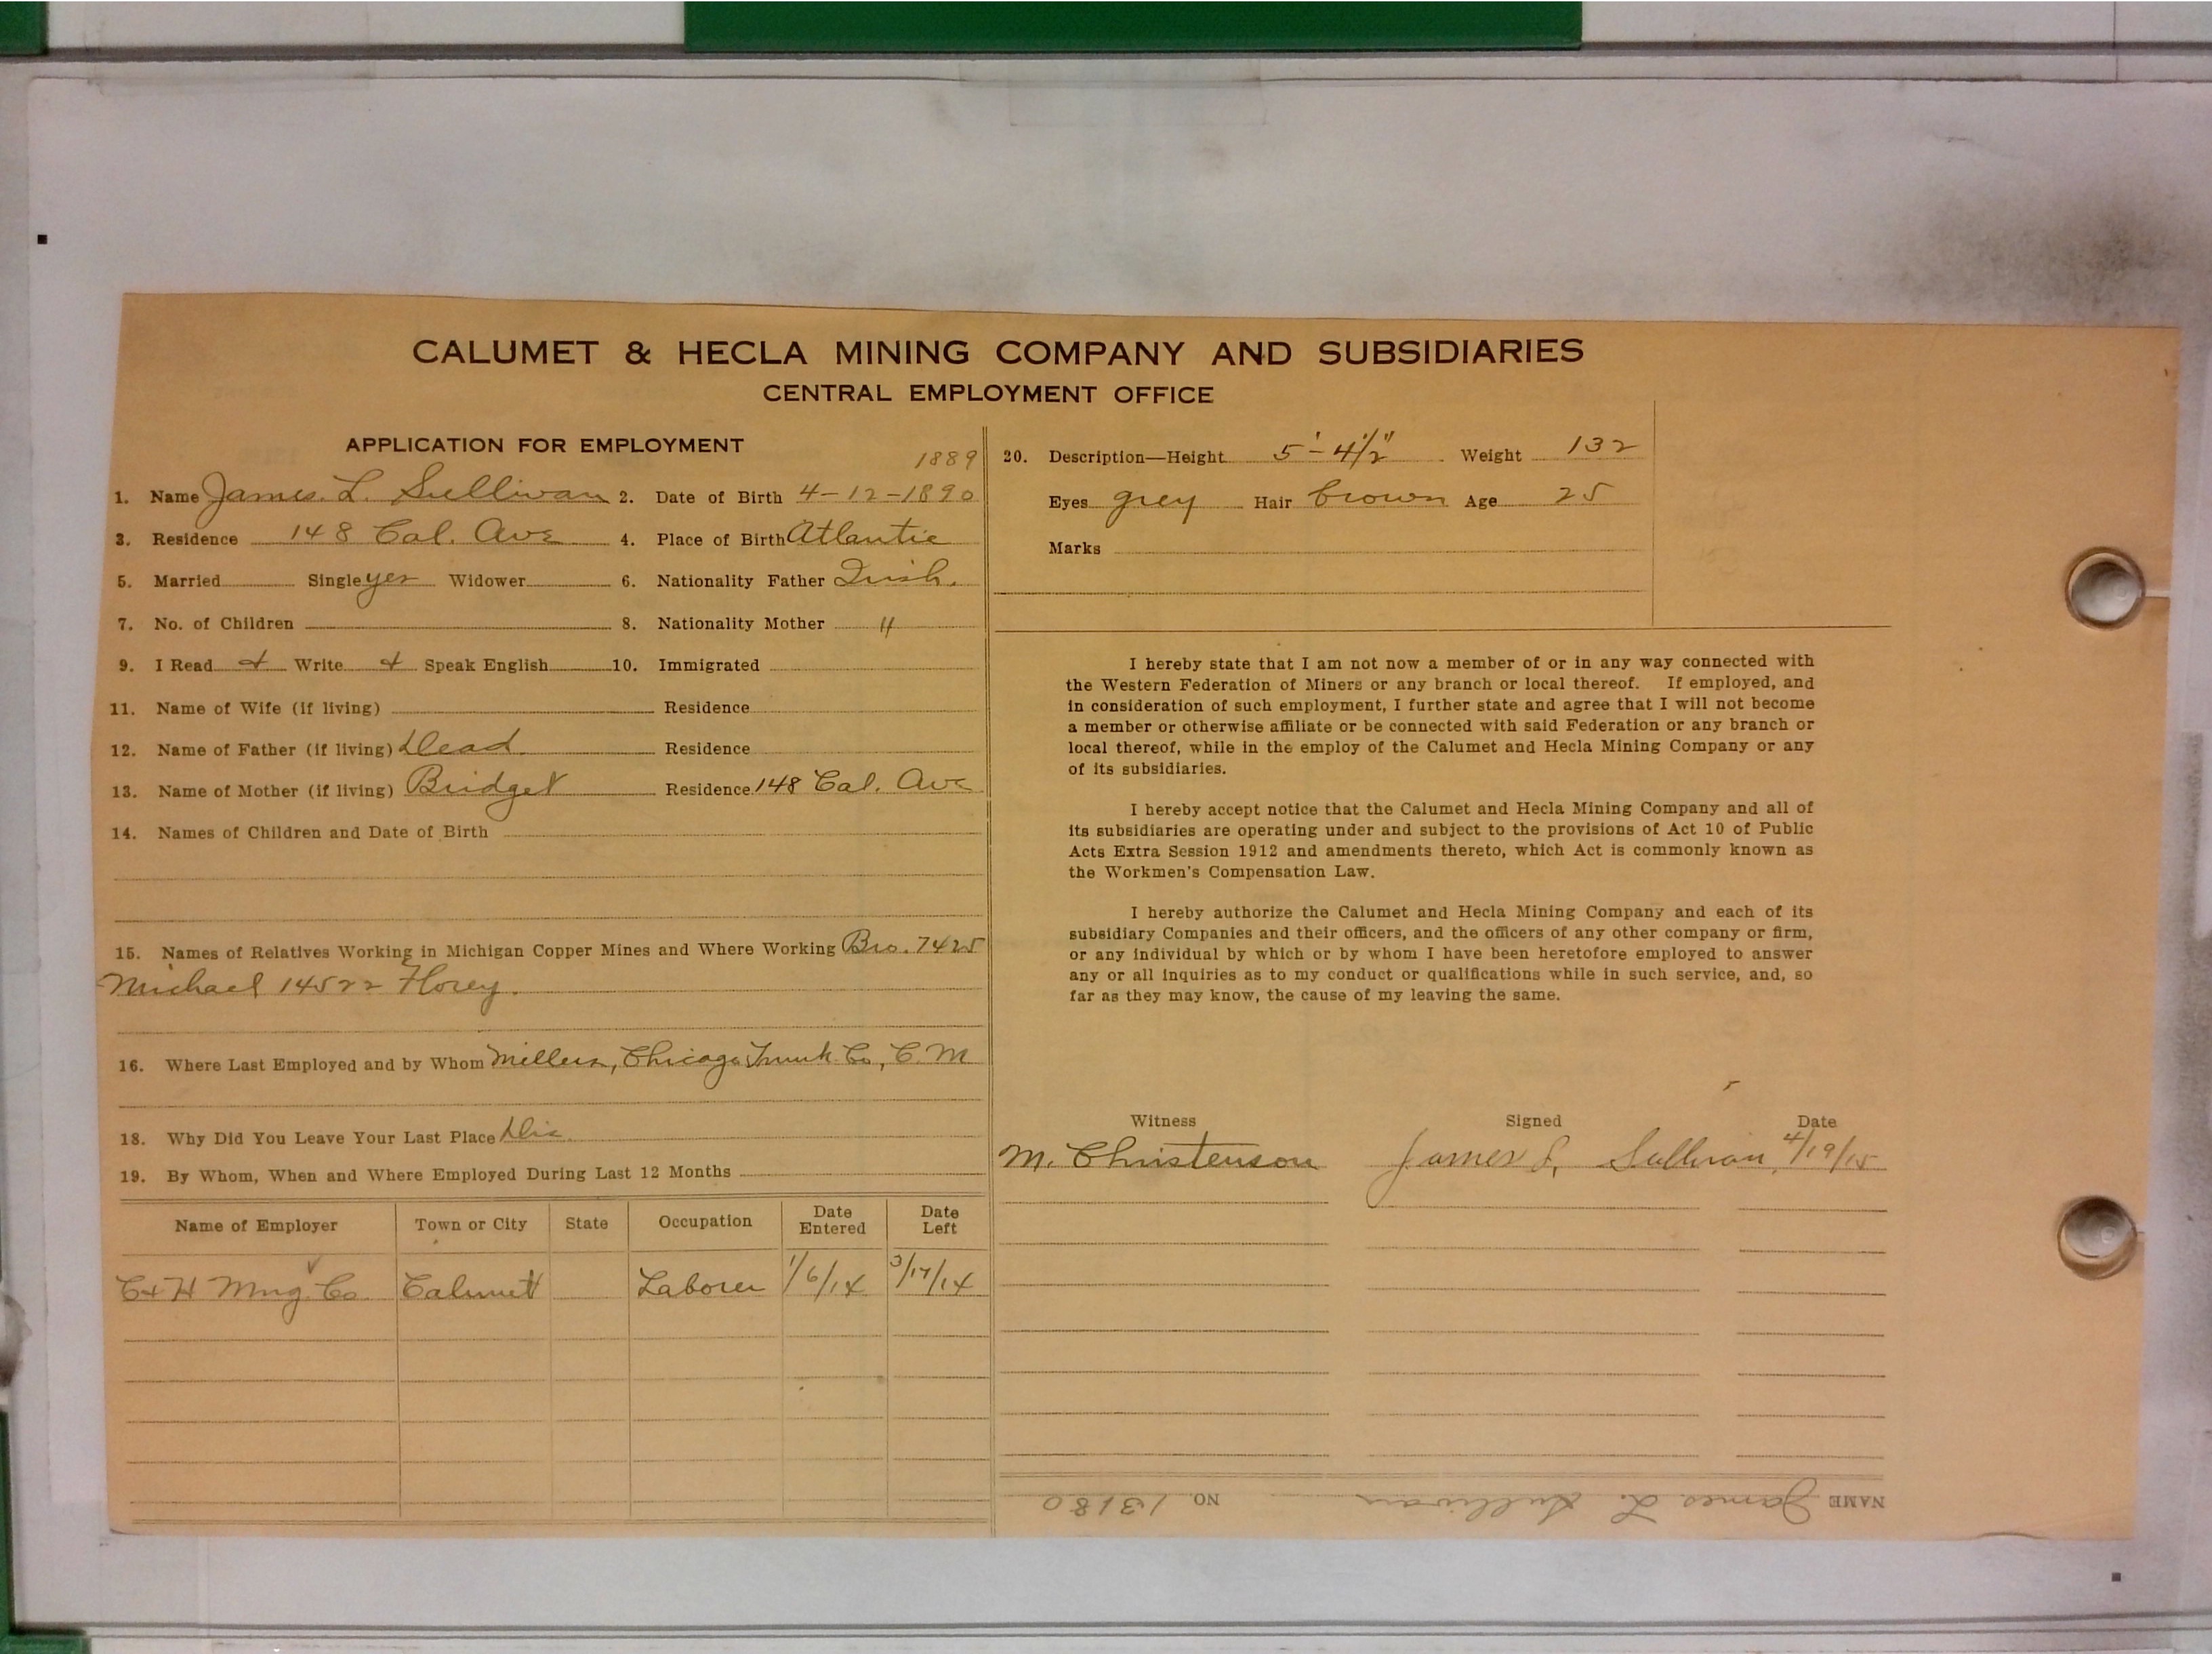 CALUMET & HECLA MINING COMPANY AND SUBSIDIARIES
CENTRAL EMPLOYMENT OFFICE
APPLICATION FOR EMPLOYMENT
1889
1. Name James. L. Sullivan 2. Date of Birth 4-12-1890
3. Residence 148 Cal. Ave 4. Place of Birth Atlantic
5. Married Single yes Widower 6. Nationality Father Irish.
7. No. of Children 8. Nationality Mother "
9. I Read & Write & Speak English 10. Immigrated
11. Name of Wife (if living) Residence
12. Name of Father (if living) Dead Residence
13. Name of Mother (if living) Bridget Residence 148 Cal. Ave
14. Names of Children and Date of Birth
15. Names of Relatives Working in Michigan Copper Mines and Where Working Bro. 7425
Michael 14522 Florey.
16. Where Last Employed and by Whom Millers, Chicago Trunk Co, C. M
18. Why Did You Leave Your Last Place Dis.
19. By Whom, When and Where Employed During Last 12 Months
Name of Employer Town or City State Occupation Date Entered Date Left
C+H Mng. Co. Calumet Laborer 1/6/14 3/17/14
20. Description—Height 5'-4½" Weight 132
Eyes grey Hair brown Age 25
Marks
I hereby state that I am not now a member of or in any way connected with
the Western Federation of Miners or any branch or local thereof. If employed, and
in consideration of such employment, I further state and agree that I will not become
a member or otherwise affiliate or be connected with said Federation or any branch or
local thereof, while in the employ of the Calumet and Hecla Mining Company or any
of its subsidiaries.
I hereby accept notice that the Calumet and Hecla Mining Company and all of
its subsidiaries are operating under and subject to the provisions of Act 10 of Public
Acts Extra Session 1912 and amendments thereto, which Act is commonly known as
the Workmen's Compensation Law.
I hereby authorize the Calumet and Hecla Mining Company and each of its
subsidiary Companies and their officers, and the officers of any other company or firm,
or any individual by which or by whom I have been heretofore employed to answer
any or all inquiries as to my conduct or qualifications while in such service, and, so
far as they may know, the cause of my leaving the same.
Witness Signed Date
M. Christenson James L. Sullivan 4/19/15
NAME James L. Sullivan NO. 13180